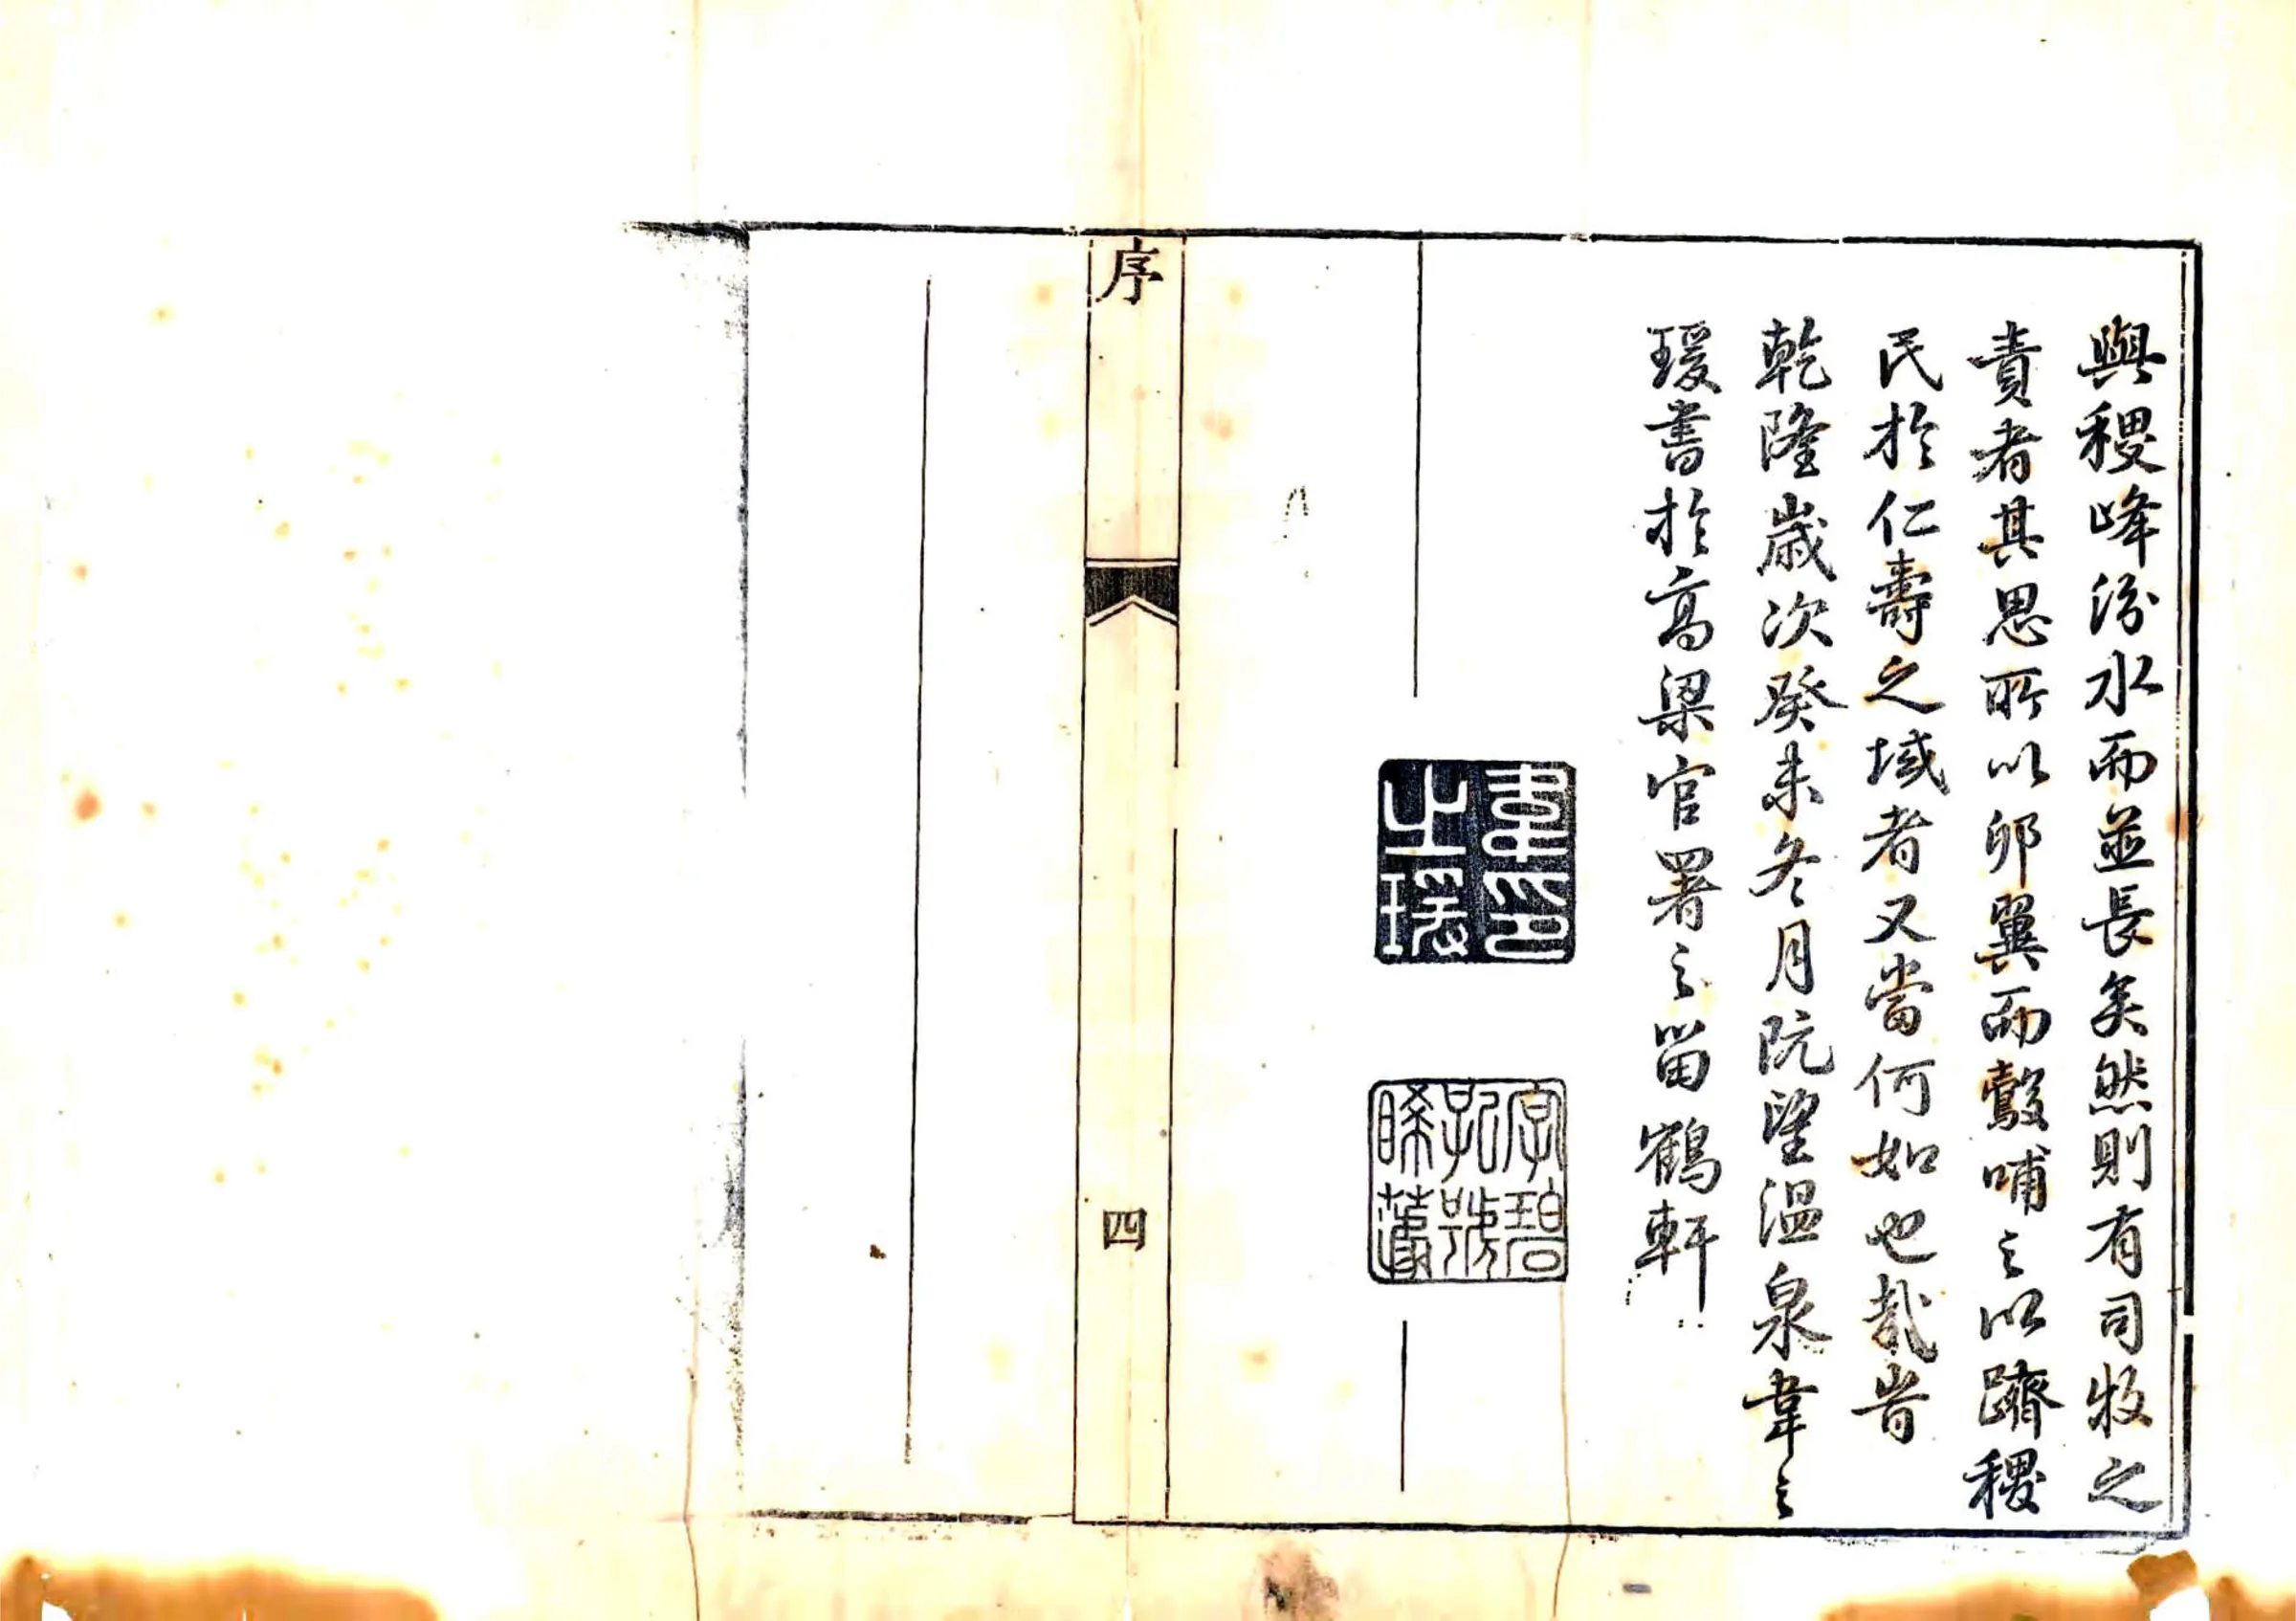 與稷峰汾水而並長矣然則有司牧之
責者其思所以卵翼而鷇哺之以躋稷
民於仁壽之域者又當何如也哉旹
乾隆歲次癸未冬月既望溫泉韋之
瑗書於高梁官署之留鶴軒
韋印
之瑗
字碧
號
序
四